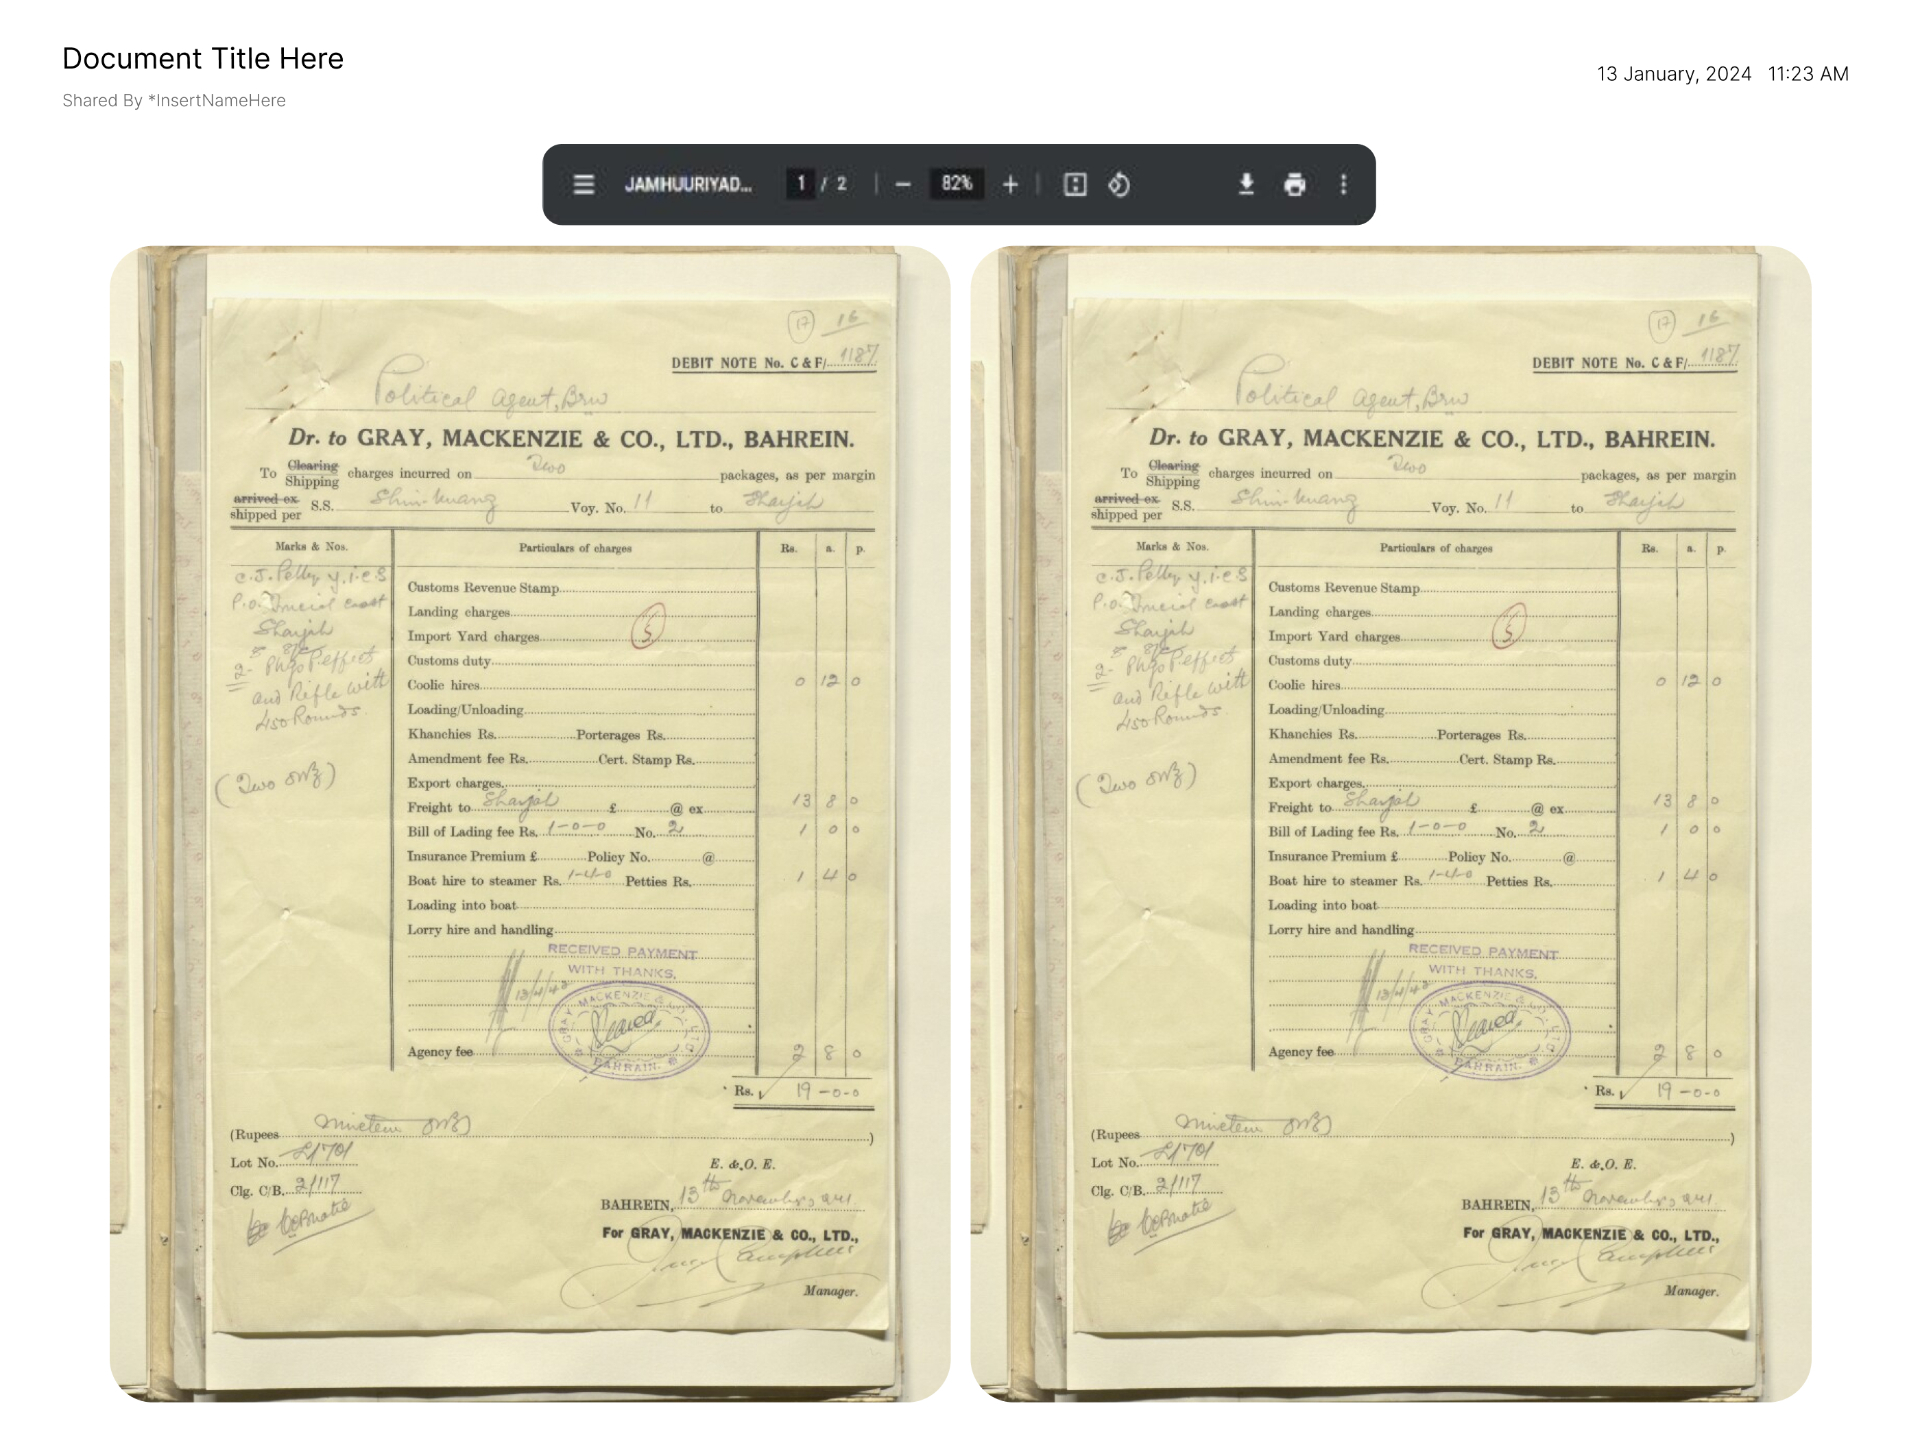 Document Title Here
Shared By *InsertNameHere
13 January, 2024 11:23 AM
JAMHUURIYAD... 1 / 2 82%
17 16
DEBIT NOTE No. C & F/ 1187
Political Agent, Brn
Dr. to GRAY, MACKENZIE & CO., LTD., BAHREIN.
To Clearing Shipping charges incurred on Two packages, as per margin
arrived ex shipped per S.S. Shin-kuang Voy. No. 11 to Sharjah
Marks & Nos. Particulars of charges Rs. a. p.
C.J. Pelly
P.O. Trucial Coast
Sharjah
2-
and Rifle with
450 Rounds.
(Two only)
Customs Revenue Stamp
Landing charges
5
Import Yard charges
Customs duty
Coolie hires 0 12 0
Loading/Unloading
Khanchies Rs. Porterages Rs.
Amendment fee Rs. Cert. Stamp Rs.
Export charges
Freight to Sharjah £ @ ex 13 8 0
Bill of Lading fee Rs. 1-0-0 No. 2 1 0 0
Insurance Premium £ Policy No. @
Boat hire to steamer Rs. 1-4-0 Petties Rs. 1 4 0
Loading into boat
Lorry hire and handling
RECEIVED PAYMENT
WITH THANKS,
13/4/42
GRAY MACKENZIE & CO. LTD.
BAHRAIN.
Agency fee 2 8 0
Rs. 19-0-0
(Rupees Nineteen only)
Lot No. £1701
Clg. C/B. 2/117
E. & O. E.
BAHREIN, 13th November, 1941
For GRAY, MACKENZIE & CO., LTD.,
Manager.
17 16
DEBIT NOTE No. C & F/ 1187
Political Agent, Brn
Dr. to GRAY, MACKENZIE & CO., LTD., BAHREIN.
To Clearing Shipping charges incurred on Two packages, as per margin
arrived ex shipped per S.S. Shin-kuang Voy. No. 11 to Sharjah
Marks & Nos. Particulars of charges Rs. a. p.
C.J. Pelly
P.O. Trucial Coast
Sharjah
2-
and Rifle with
450 Rounds.
(Two only)
Customs Revenue Stamp
Landing charges
5
Import Yard charges
Customs duty
Coolie hires 0 12 0
Loading/Unloading
Khanchies Rs. Porterages Rs.
Amendment fee Rs. Cert. Stamp Rs.
Export charges
Freight to Sharjah £ @ ex 13 8 0
Bill of Lading fee Rs. 1-0-0 No. 2 1 0 0
Insurance Premium £ Policy No. @
Boat hire to steamer Rs. 1-4-0 Petties Rs. 1 4 0
Loading into boat
Lorry hire and handling
RECEIVED PAYMENT
WITH THANKS,
13/4/42
GRAY MACKENZIE & CO. LTD.
BAHRAIN.
Agency fee 2 8 0
Rs. 19-0-0
(Rupees Nineteen only)
Lot No. £1701
Clg. C/B. 2/117
E. & O. E.
BAHREIN, 13th November, 1941
For GRAY, MACKENZIE & CO., LTD.,
Manager.